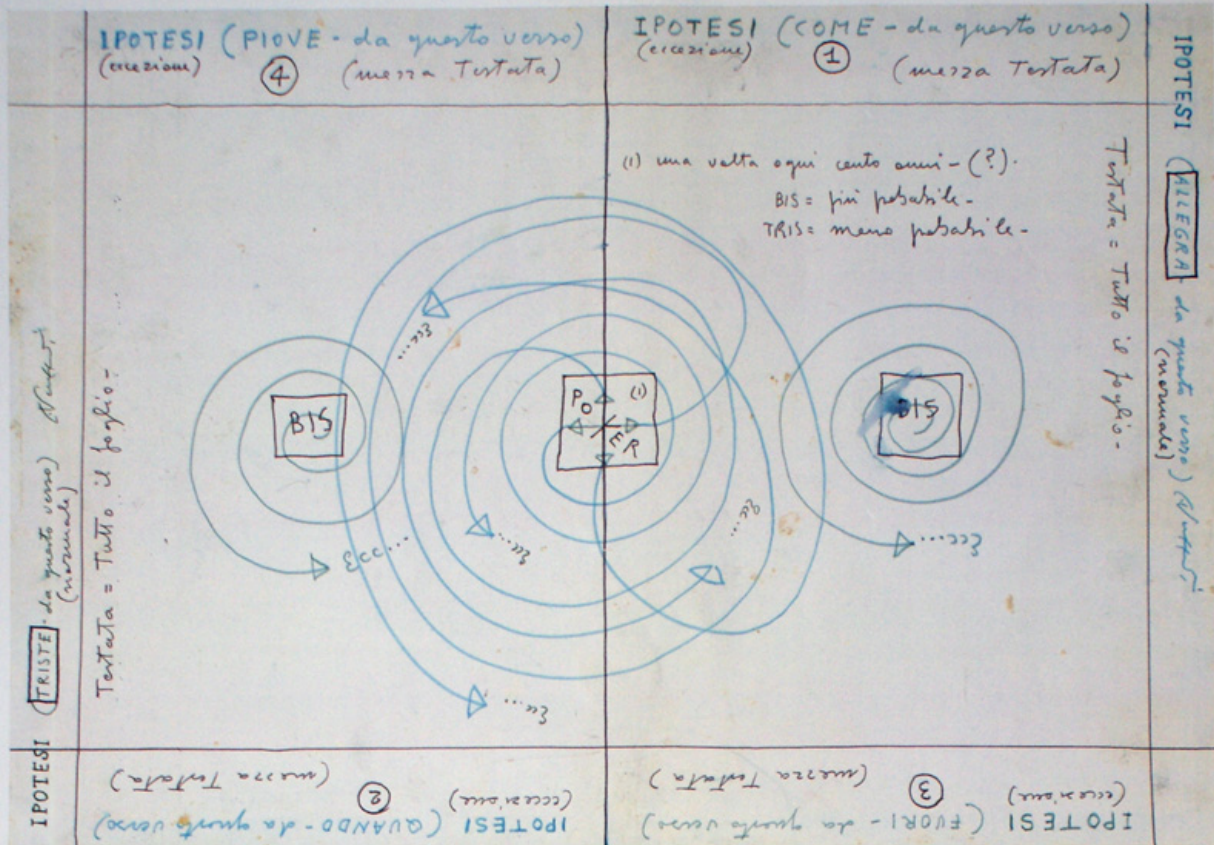 IPOTESI (PIOVE - da questo verso)
(eccezione) ④ (mezza Testata)
IPOTESI (COME - da questo verso)
(eccezione) ① (mezza Testata)
IPOTESI (ALLEGRA - da questo verso)
(normale)
Testata = Tutto il foglio -
(1) una volta ogni cento anni - (?).
BIS = più probabile -
TRIS = meno probabile -
Ecc...
BIS
PO (1)
/ER
BIS
Ecc...
Ecc...
Ecc...
Ecc...
Ecc...
IPOTESI (TRISTE - da questo verso)
(normale)
Testata = Tutto il foglio -
IPOTESI (QUANDO - da questo verso)
(eccezione) ② (mezza Testata)
IPOTESI (FUORI - da questo verso)
(eccezione) ③ (mezza Testata)